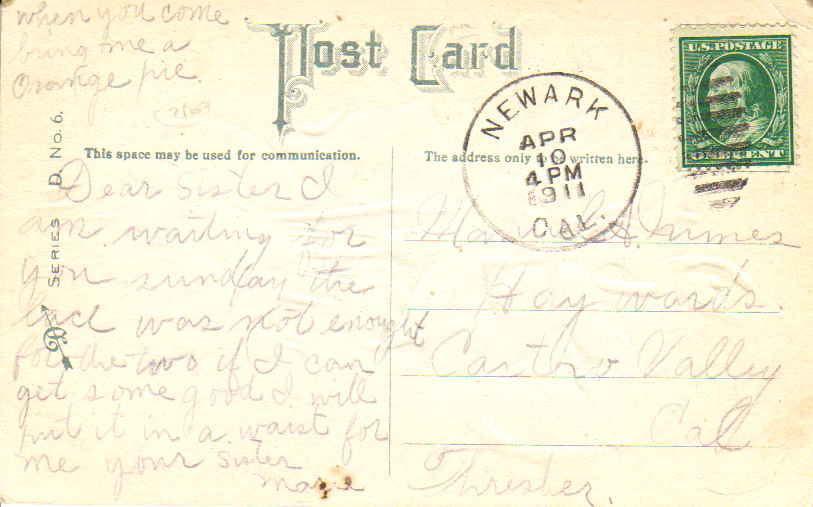 when you come
bring me a
Orange pie.
Post Card
U.S. POSTAGE
ONE CENT
NEWARK
APR
10
4 PM
1911
CAL.
SERIES D. No. 6.
This space may be used for communication.
The address only to be written here.
Dear Sister I
am waiting for
you sunday the
lace was not enought
for the two if I can
get some good I will
put it in a waist for
me your sister
Marie
Haywards.
Castro Valley
Cal
Thresher.